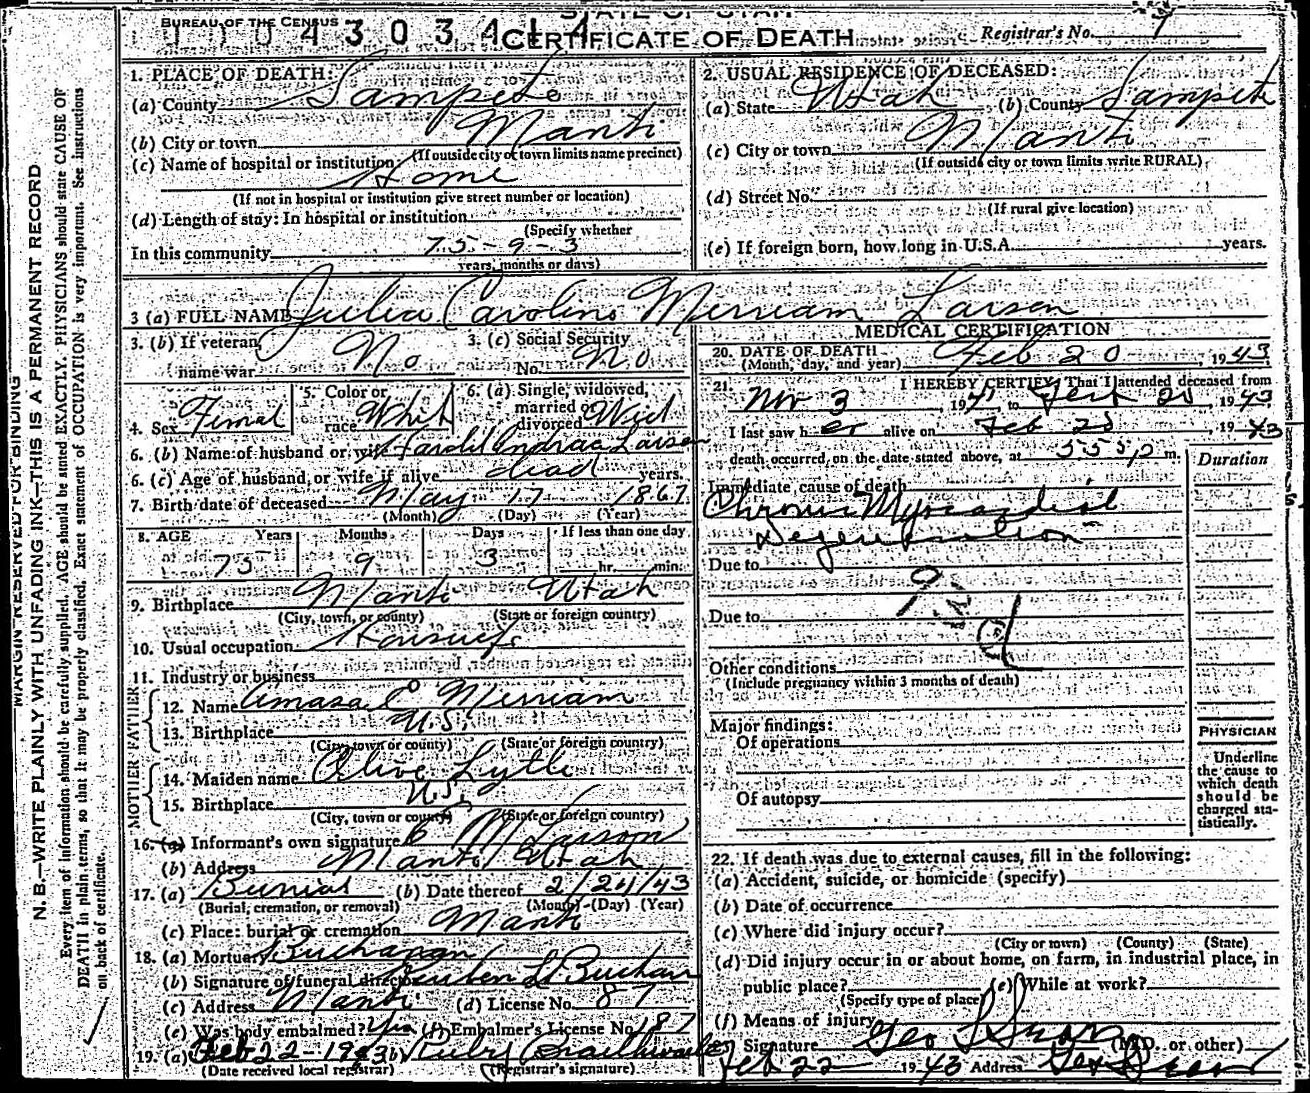 STATE OF UTAH
BUREAU OF THE CENSUS
CERTIFICATE OF DEATH
Registrar's No. 9
MARGIN RESERVED FOR BINDING
N. B.—WRITE PLAINLY WITH UNFADING INK—THIS IS A PERMANENT RECORD
Every item of information should be carefully supplied. AGE should be stated EXACTLY. PHYSICIANS should state CAUSE OF
DEATH in plain terms, so that it may be properly classified. Exact statement of OCCUPATION is very important. See instructions
on back of certificate.
1. PLACE OF DEATH:
(a) County Sampete
(b) City or town Manti
(If outside city or town limits name precinct)
(c) Name of hospital or institution
Home
(If not in hospital or institution give street number or location)
(d) Length of stay: In hospital or institution
(Specify whether
In this community 75-9-3
years, months or days)
2. USUAL RESIDENCE OF DECEASED:
(a) State Utah (b) County Sampete
(c) City or town Manti
(If outside city or town limits write RURAL)
(d) Street No.
(If rural give location)
(e) If foreign born, how long in U.S.A. years.
3 (a) FULL NAME Julia Caroline Merriam Larsen
3. (b) If veteran, name war No
3. (c) Social Security No. No
4. Sex Femal
5. Color or race Whit
6. (a) Single, widowed, married or divorced Wid
6. (b) Name of husband or wife Larsen
6. (c) Age of husband, or wife if alive dead years.
7. Birth date of deceased May 17 1867
(Month) (Day) (Year)
8. AGE Years Months Days If less than one day
75 9 3 hr. min.
9. Birthplace Manti Utah
(City, town, or county) (State or foreign country)
10. Usual occupation Housewife
11. Industry or business
FATHER
12. Name Amasa E Merriam
13. Birthplace U.S.
(City, town or county) (State or foreign country)
MOTHER
14. Maiden name Olive Lytle
15. Birthplace U.S.
(City, town or county) (State or foreign country)
16. (a) Informant's own signature M Larson
(b) Address Manti Utah
17. (a) Burial (b) Date thereof 2/24/43
(Burial, cremation, or removal) (Month) (Day) (Year)
(c) Place: burial or cremation Manti
18. (a) Mortuary Buchanan
(b) Signature of funeral director
(c) Address Manti (d) License No. 87
(e) Was body embalmed? Yes (f) Embalmer's License No. 187
19. (a) Feb 22-1943 (b) Ruby Braithwaite
(Date received local registrar) (Registrar's signature)
MEDICAL CERTIFICATION
20. DATE OF DEATH Feb 20, 1943
(Month, day, and year)
21. I HEREBY CERTIFY, That I attended deceased from
Nov 3, 1941 to Feb 20 1943
I last saw h er alive on Feb 20 1943
death occurred, on the date stated above, at 555 p m.
Duration
Immediate cause of death
Chronic Myocardial
Degeneration
Due to
Due to
Other conditions
(Include pregnancy within 3 months of death)
Major findings:
Of operations
Of autopsy
PHYSICIAN
Underline
the cause to
which death
should be
charged sta-
tistically.
22. If death was due to external causes, fill in the following:
(a) Accident, suicide, or homicide (specify)
(b) Date of occurrence
(c) Where did injury occur?
(City or town) (County) (State)
(d) Did injury occur in or about home, on farm, in industrial place, in
public place? (e) While at work?
(Specify type of place)
(f) Means of injury
Signature Geo (M.D. or other)
Feb 22 1943 Address